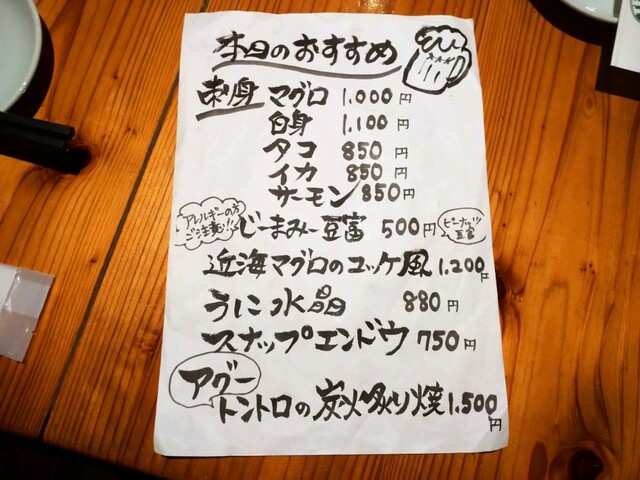 本日のおすすめ
刺身 マグロ 1.000円
白身 1.100円
タコ 850円
イカ 850円
サーモン 850円
アレルギーの方
ご注意!!
じーまみー豆富 500円
ピーナッツ
豆富
近海マグロのユッケ風 1.200円
うに水晶 880円
スナップエンドウ 750円
アグー
トントロの炭火炙り焼 1.500円